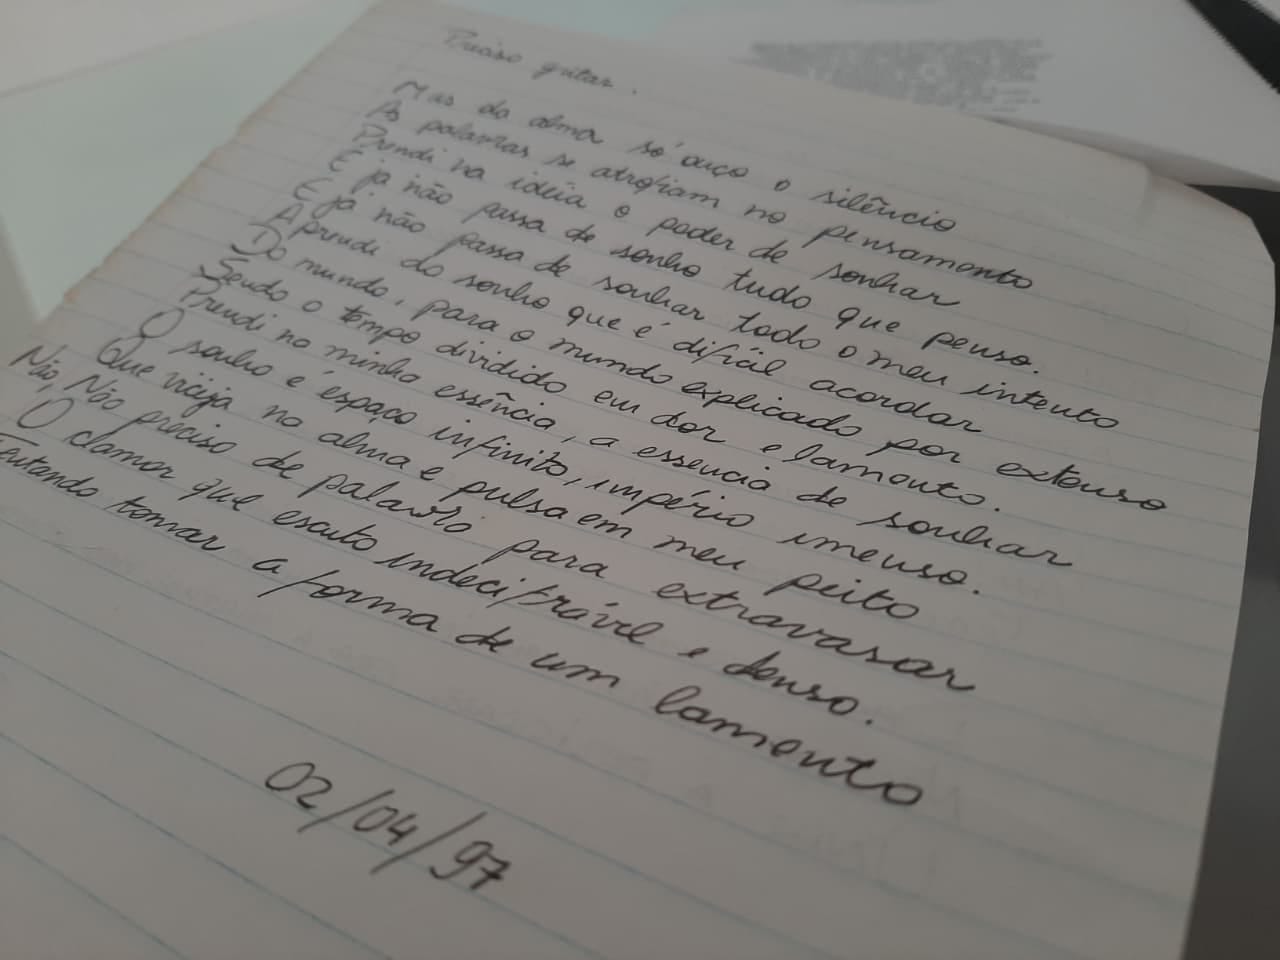 Preciso gritar.
Mas da alma só ouço o silêncio
As palavras se atrofiam no pensamento
Prendi na idéia o poder de sonhar
E já não passa de sonho tudo que penso.
E já não passa de sonhar todo o meu intento
Aprendi do sonho que é difícil acordar
Do mundo, para o mundo explicado por extenso
Sendo o tempo dividido em dor e lamento.
Prendi na minha essência, a essencia de sonhar
O sonho é espaço infinito, império imenso.
Que viceja na alma e pulsa em meu peito
Não, Não preciso de palavra para extravasar
O clamor que escuto indecifrável e denso.
Tentando tomar a forma de um lamento
02/04/97